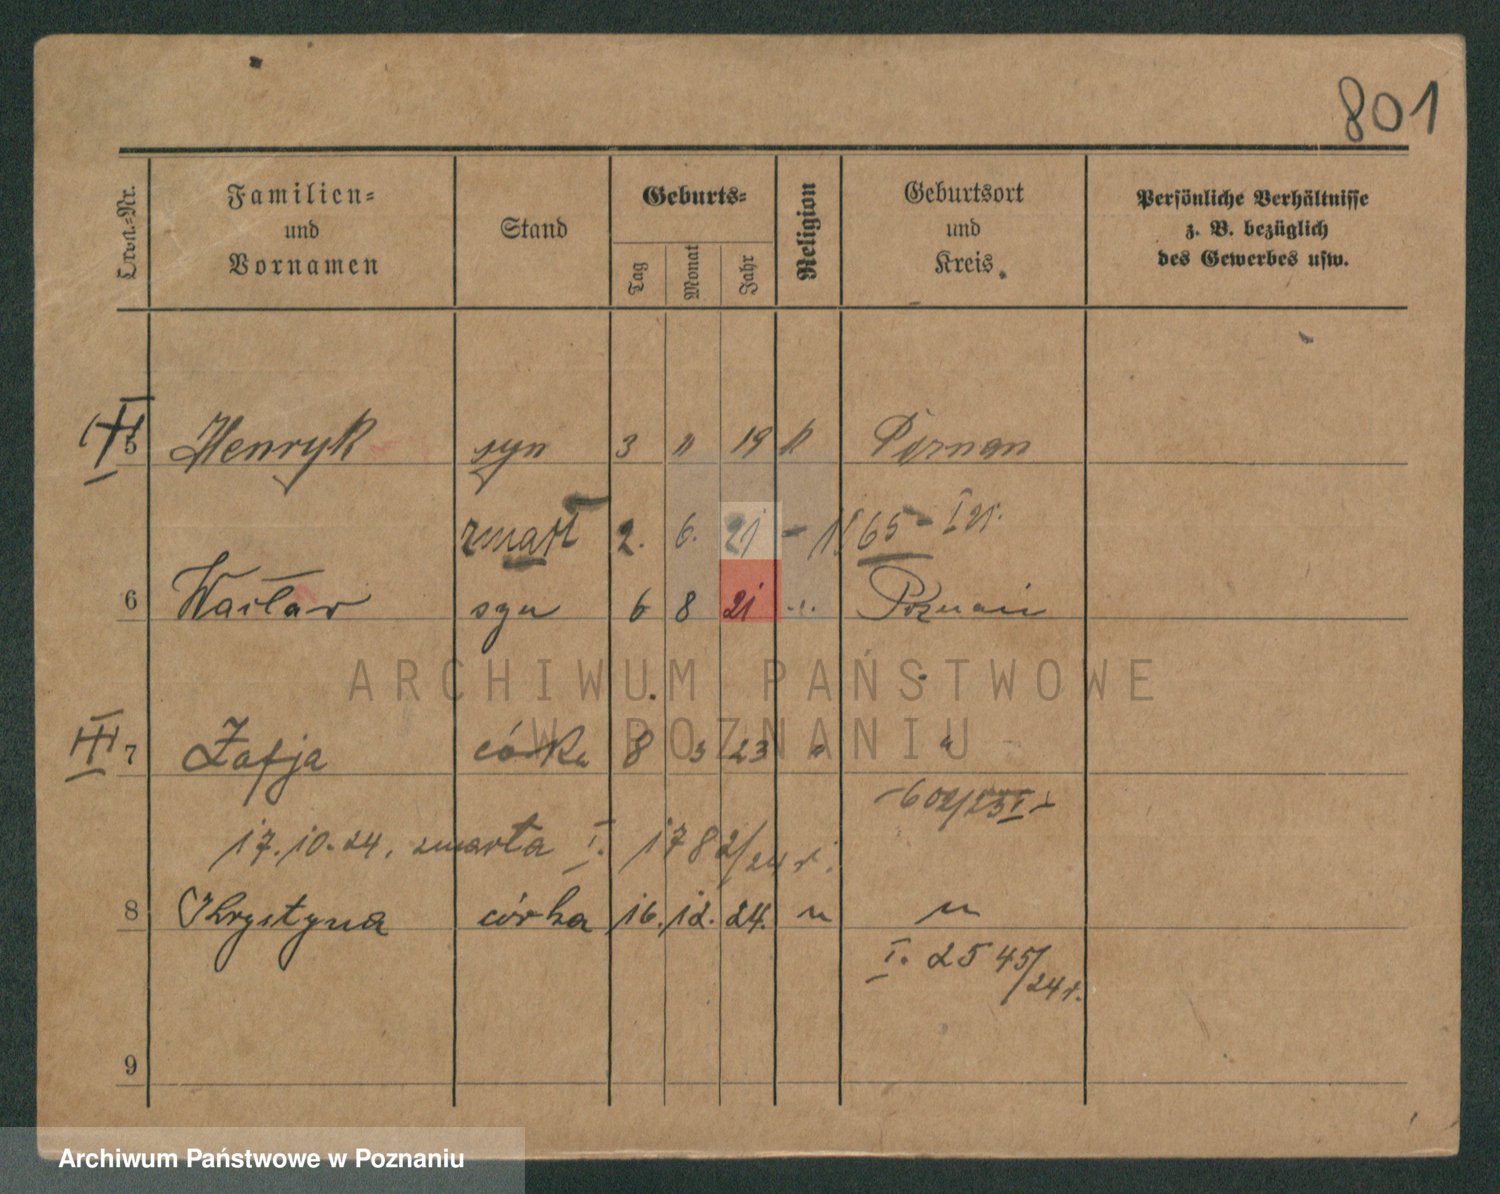 801
Familien- und Vornamen
Stand
Geburts-
Tag
Monat
Jahr
Religion
Geburtsort und Kreis
Persönliche Verhältnisse z. B. bezüglich des Gewerbes usw.
5 Henryk syn 3 " 19 k Poznan
zmarł 2. 6. 21 - 65 - I
6 Wacław syn 6 8 21 " Poznań
ARCHIWUM PAŃSTWOWE
W POZNANIU
7 Zofja córka 8 3 23 " "
602/23 I
17.10.24. zmarła I. 1782/24 r.
8 Krystyna córka 16. 12. 24. " "
I. 2545/24 r.
9
Archiwum Państwowe w Poznaniu